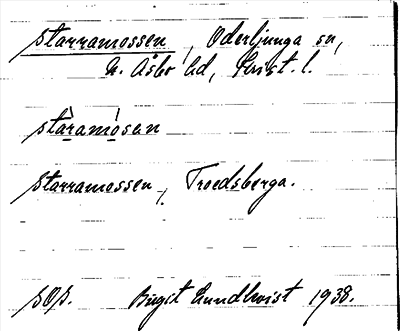 Starramossen, Oderljunga sn,
N. Åsbo hd, Krist. l.
stàramòsen
Starramossen, Troedsberga.
SOS. Birgit Lundkvist 1938.